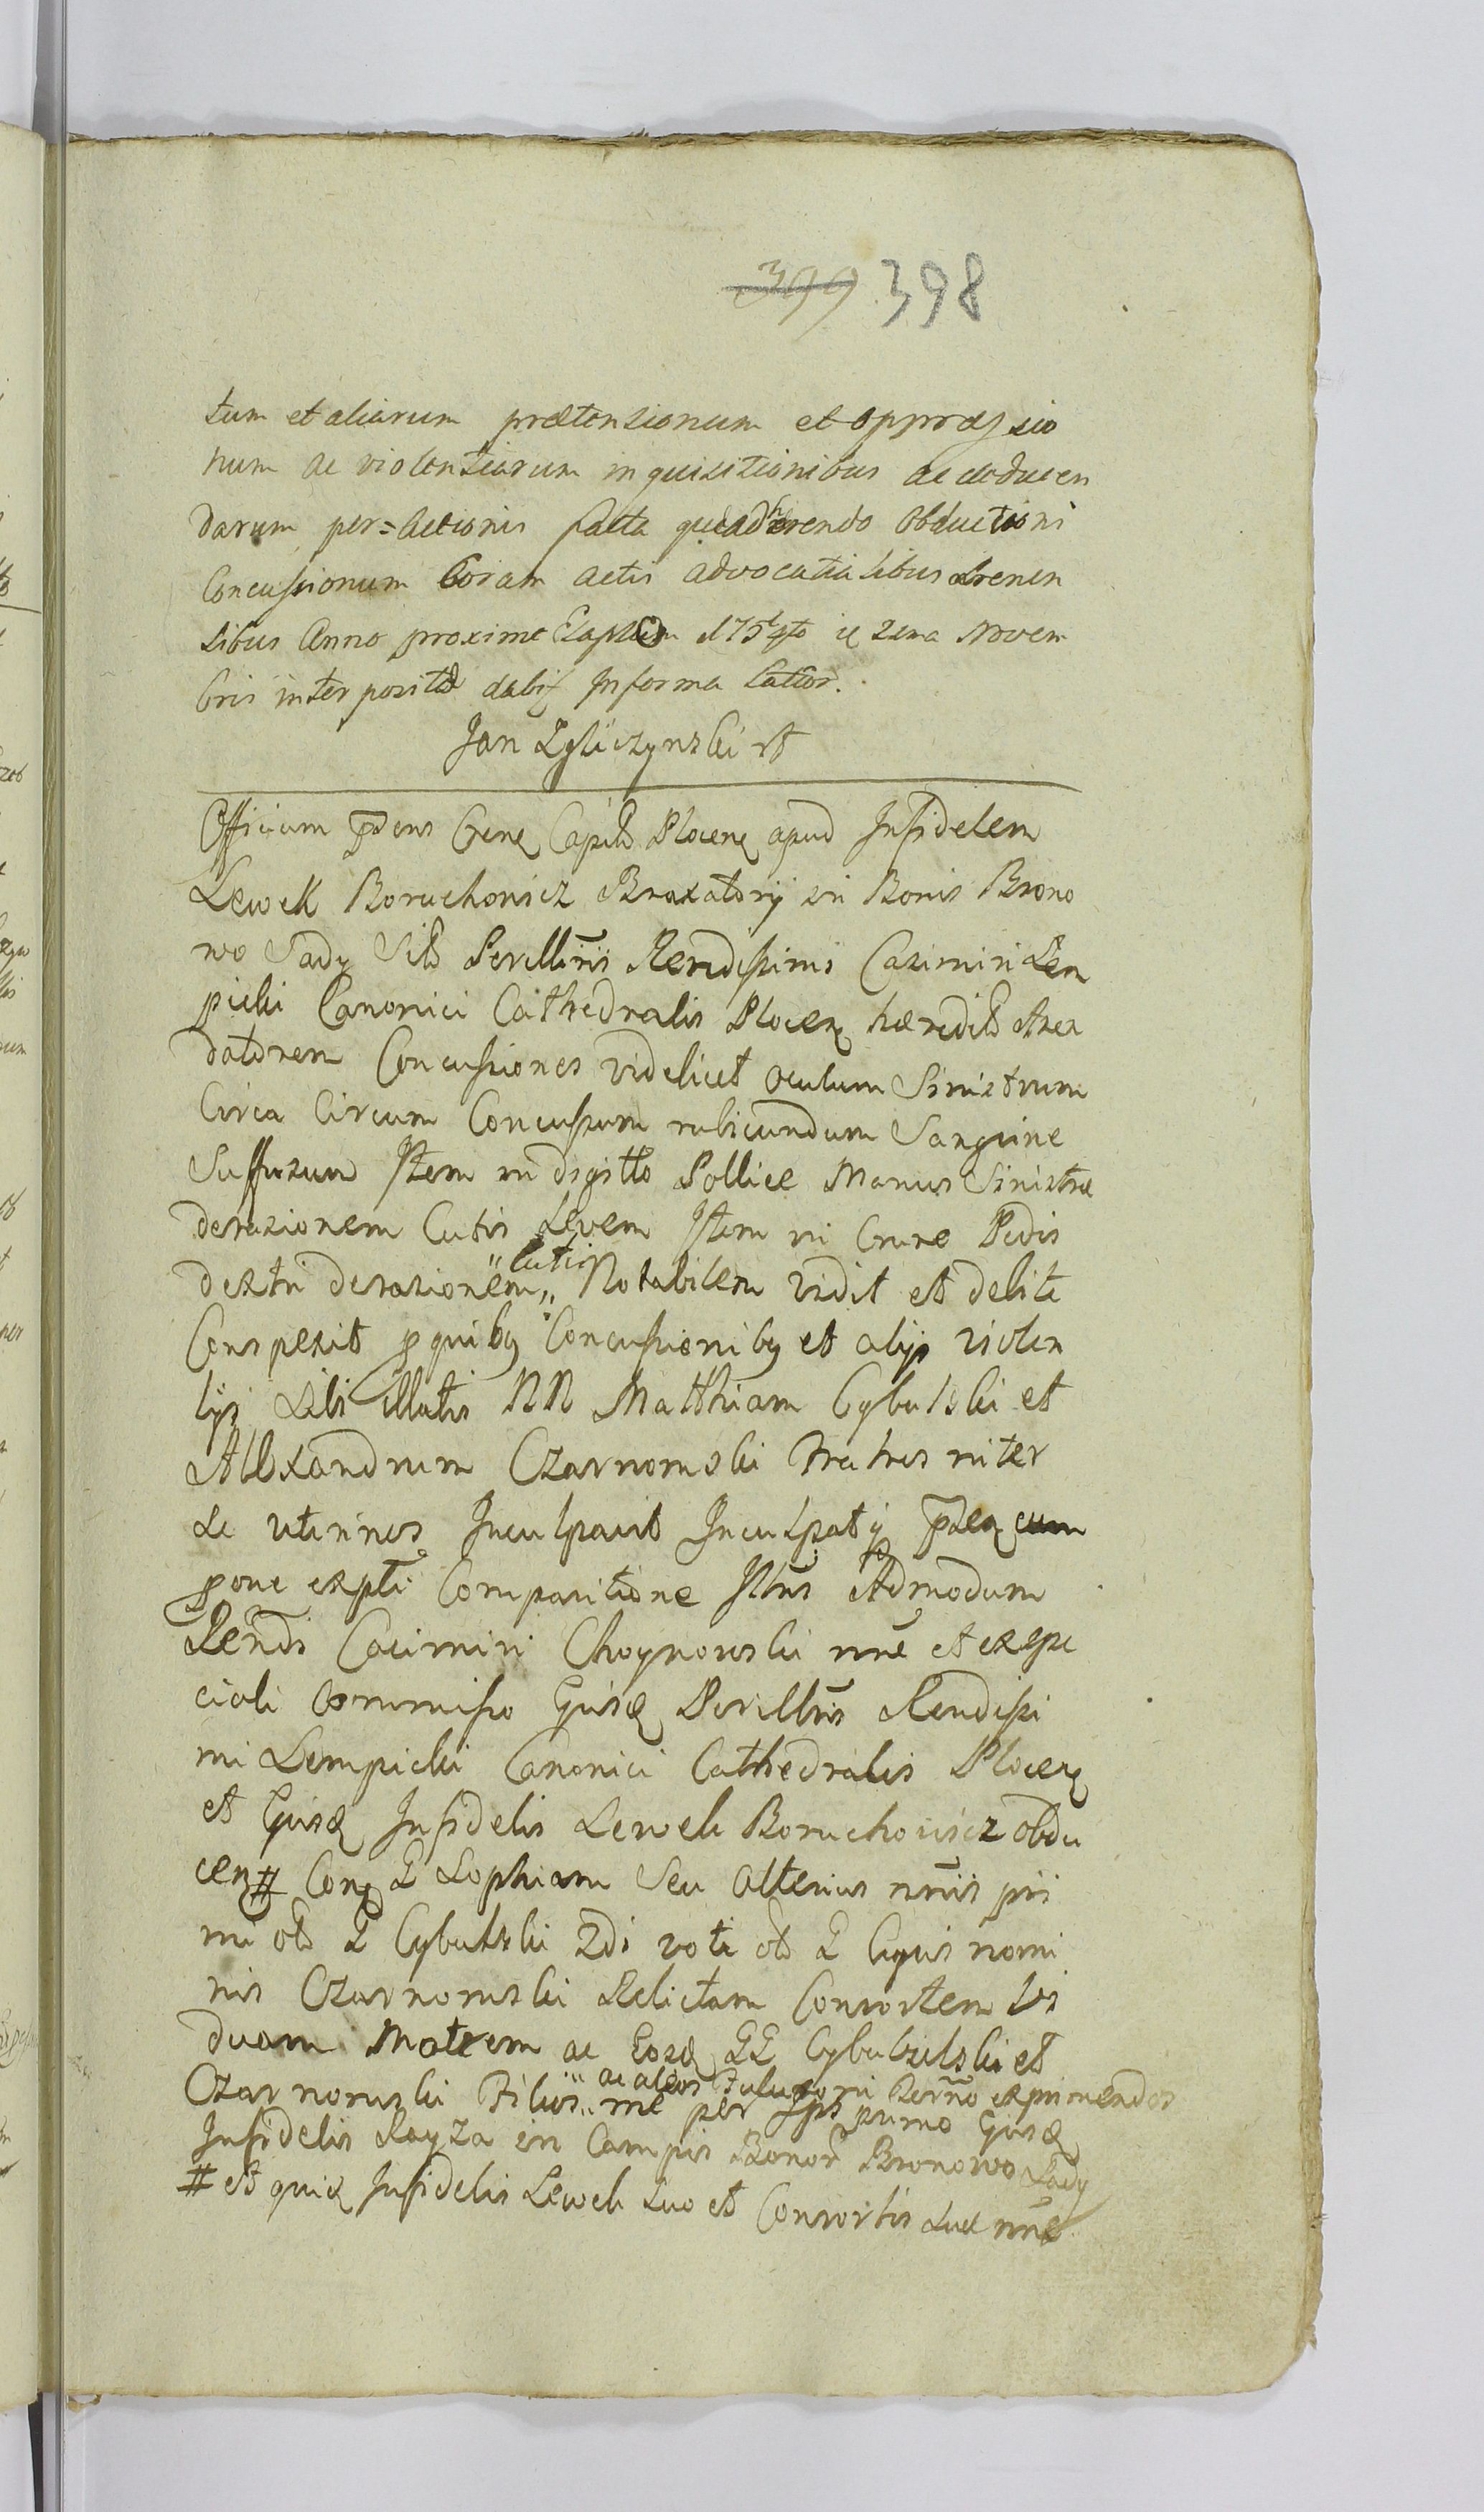 399 398
tum et aliarum prætensionum et oppræssio
num ac violentiarum inquisitionibus ac deducen
darum per=actionis facta que adhærendo Obductioni
Concussionum Coram actis advocatialibus
sibus Anno proxime Elapso Novem
bris interposita dabit Informa
Jan Zgliczynski
Officium Præns Gene Capitle Plocen apud Infidelem
Lewek Boruchowicz Braxatorij in Bonis Brono
wo Sady Sitis Perillris Rendissimi Casimiri Lem
picki Canonici Cathedralis Plocen hæredit Aren
datorem Concussiones videlicet oculum Sinistrum
Circa Circum Concussum rubicundum Sanguine
Suffusum Item in digitto Pollice Manus Sinistræ
derasionem Cutis Levem Item in Crure Pedis
dextri derasionem „ cutis „ Notabilem vidit et debite
Conspexit p quibq Concussionibq et alijs violen
tijs Sibi illatis NN Matthiam Cybulski et
Allexandrum Czarnomski Fratres inter
se uterinos Inculpavit Inculpatq cum
Comparitione Admodum
Rendi Casimiri Choynowski nne et ex spe
ciali Commisso Ejusd Perillris Rendissi
mi Lempicki Canonici Cathedralis Plocen
et Ejusd Infidelis Lewek Boruchowicz obdu
cen # Con G Sophiam Seu alterius nnis pri
mi ol G Cybulski 2di voti ol G Cujus nomi
nis Czarnomski Relictam Consortem Vi
duam Matrem ac Eosd GG Cybulski et
Czarnomski Filios „ ac alios exprimendos
me per primo Ejusd
Infidelis Rayza in Campis Bonor Bronowo Sady
# et quid Infidelis Lewek Suo et Consortis Suæ nne